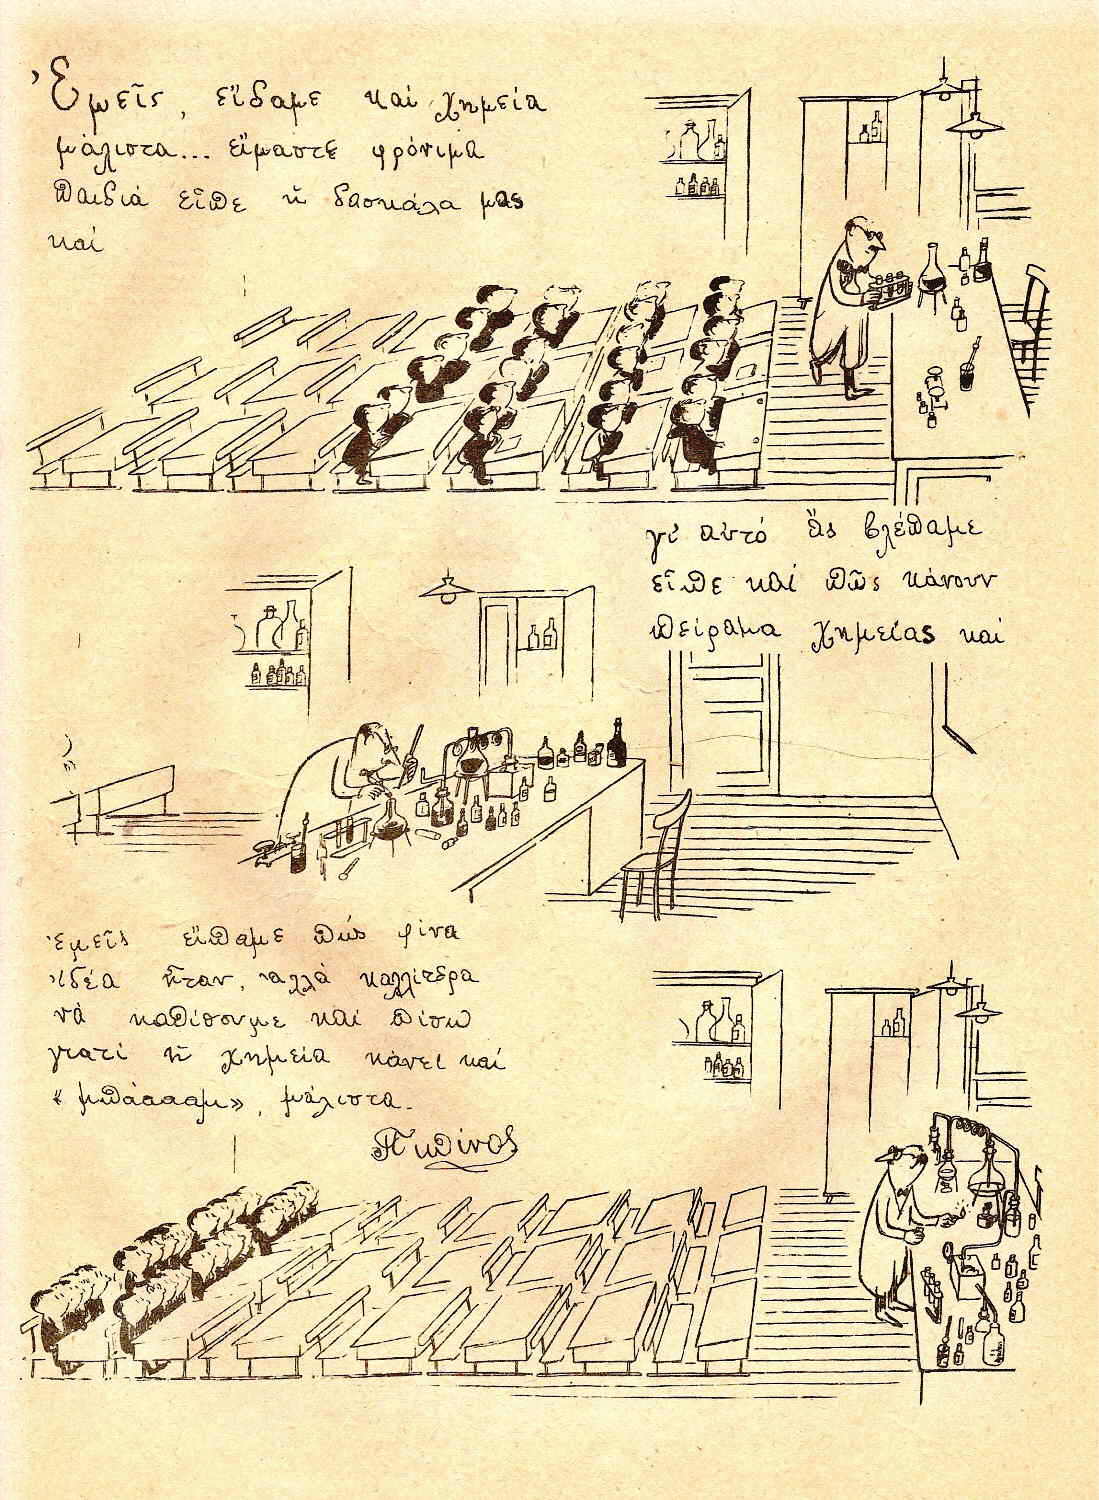 Ἐμεῖς, εἴδαμε καί χημεία
μάλιστα... εἴμαστε φρόνιμα
παιδιά εἶπε ἡ δασκάλα μας
καί
γι' αὐτό ἄς βλέπαμε
εἶπε καί πῶς κάνουν
πείραμα χημείας καί
Ἐμεῖς εἴπαμε πώς φίνα
ἰδέα ἦταν, ἀλλά καλλίτερα
νά καθίσουμε καί πίσω
γιατί ἡ χημεία κάνει καί
«μπάαααμ», μάλιστα.